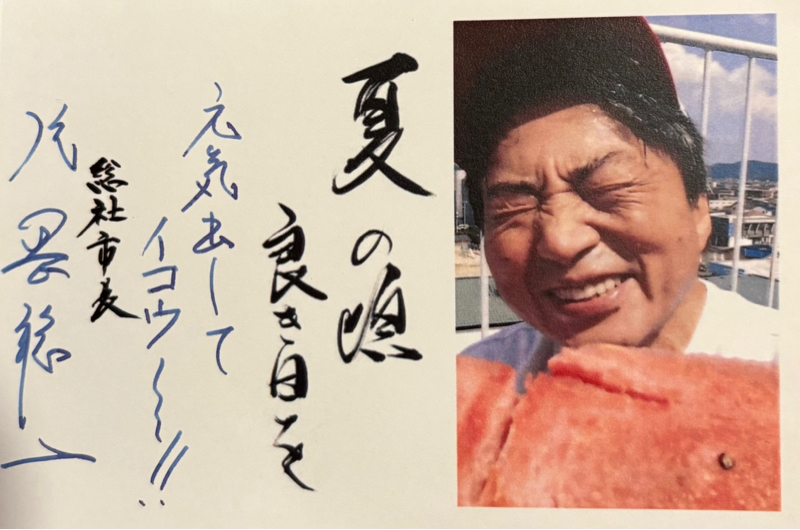 夏の憩
良き日を
元気出して
イコウ〜〜!!
総社市長
片岡聡一